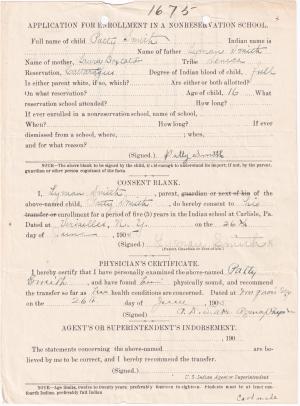 1675
APPLICATION FOR ENROLLMENT IN A NONRESERVATION SCHOOL.
Full name of child Patty Smith Indian name is
Name of father Lyman Smith
Name of mother, Tribe Seneca
Reservation, Cattaraugus Degree of Indian blood of child, full
Is either parent white, if so, which? Are either or both allotted?
On what reservation? Age of child, 16 What
reservation school attended? How long?
If ever enrolled in a nonreservation school, name of school,
When? How long? If ever
dismissed from a school, where, when,
and for what reason?
(Signed.) Patty Smith
NOTE.—The above blank to be signed by the child, if old enough to understand its import; if not, by the parent, guardian or other person cognizant of the facts.
CONSENT BLANK.
I, Lyman Smith, parent, guardian or next of kin of the
above-named child, Patty Smith, do hereby consent to his
transfer or enrollment for period of five (5) years in the Indian school at Carlisle, Pa.
Dated at Versailles, N. Y. on the 26th
day of June 190
(Signed) Lyman Smith
PHYSICIAN'S CERTIFICATE.
I hereby certify that I have personally examined the above-named, Patty
Smith, and have found physically sound, and recommend
the transfer so far as health conditions are concerned. Dated at
on the 26th day of June 190
(Signed) A. D. Lake
AGENT'S OR SUPERINTENDENT'S INDORSEMENT.
The statements concerning the above-named are be-
lieved by me to be correct, and I hereby recommend the transfer.
(Signed)
U. S. Indian Agent or Superintendent
NOTE.—Age limits, twelve to twenty years; preferably fourteen to eighteen. Students must be at least one-fourth Indian, preferably full Indian
Card made